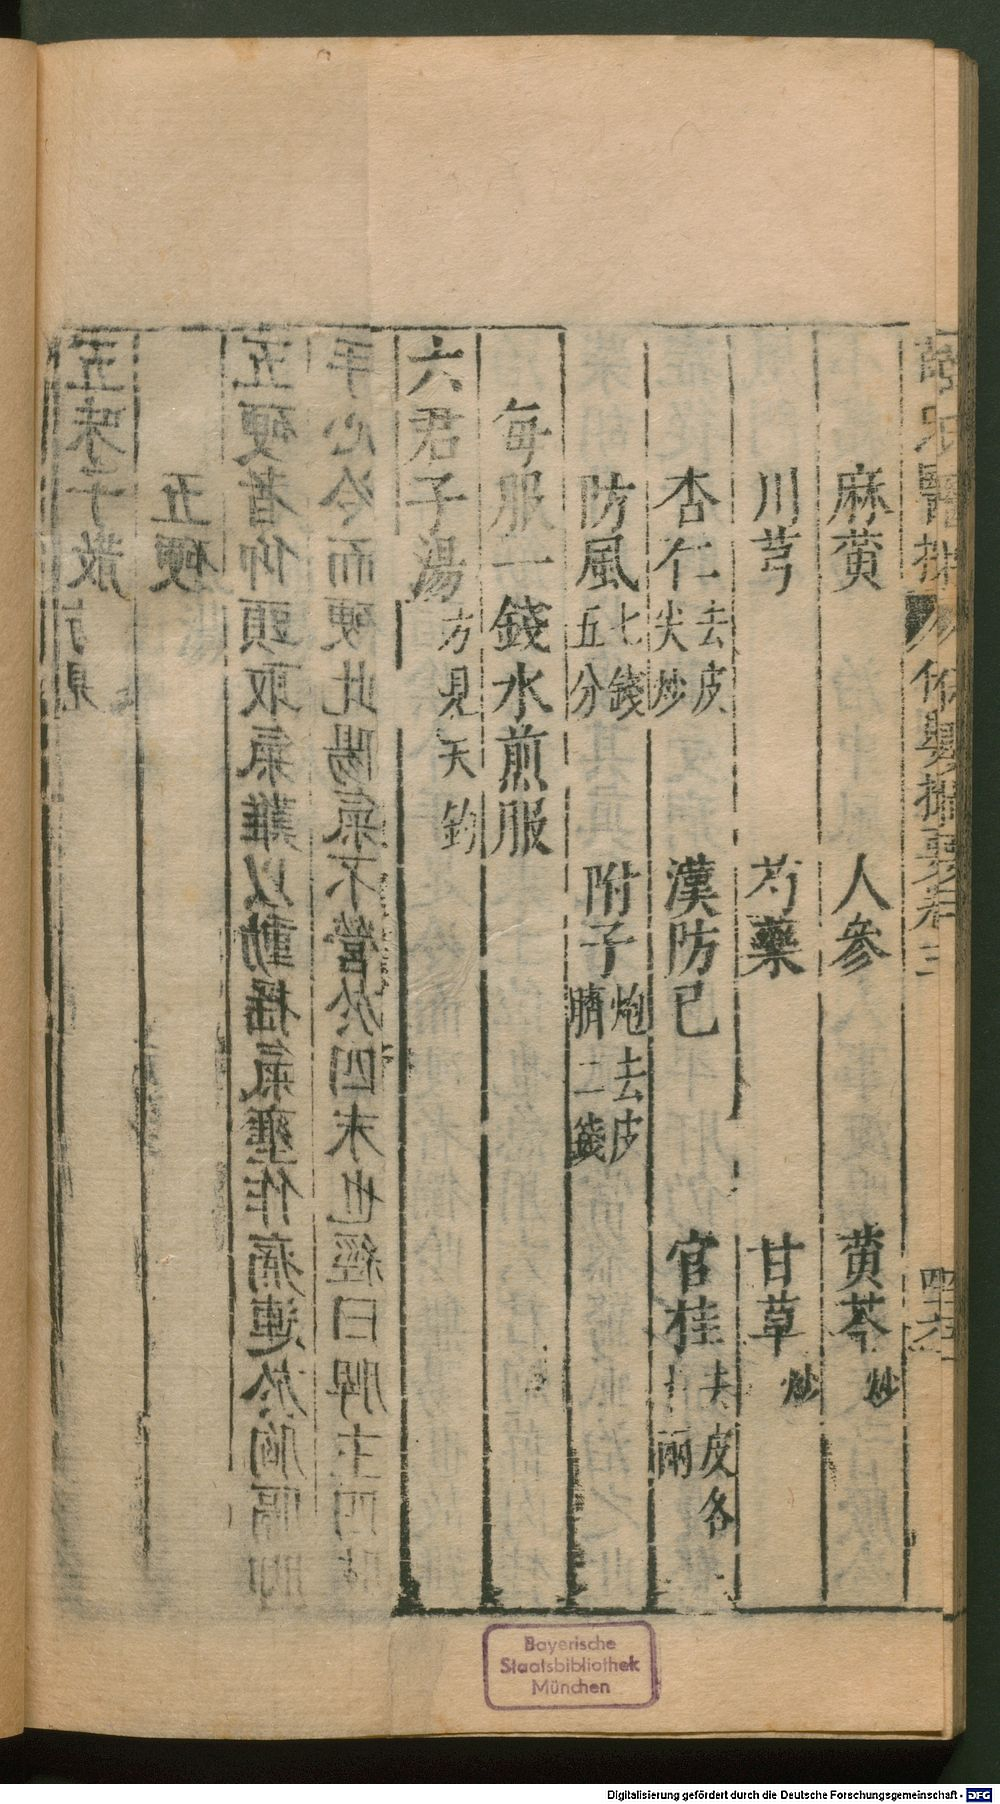 薛氏醫按 保嬰撮要卷三 四十六
麻黄 人參 黄芩炒
川芎 芍藥 甘草炒
杏仁去皮尖炒 漢防己 官桂去皮各兩
防風七錢五分 附子炮去皮臍二錢
每服一錢水煎服
六君子湯方見天釣
手心冷而硬此陽氣不營於四末也經曰脾主四肢
五硬者仰頭取氣難以動搖氣壅作痛連於胸膈間
五硬
五味子散方見
Bayerische
Staatsbibliothek
München
Digitalisierung gefördert durch die Deutsche Forschungsgemeinschaft - DFG